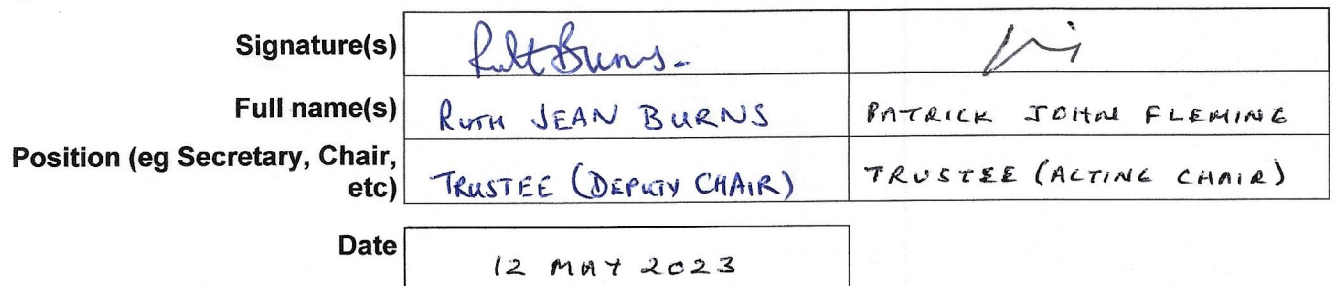 Signature(s) Ruth Burns.
Full name(s) RUTH JEAN BURNS PATRICK JOHN FLEMING
Position (eg Secretary, Chair, etc) TRUSTEE (DEPUTY CHAIR) TRUSTEE (ACTING CHAIR)
Date 12 MAY 2023